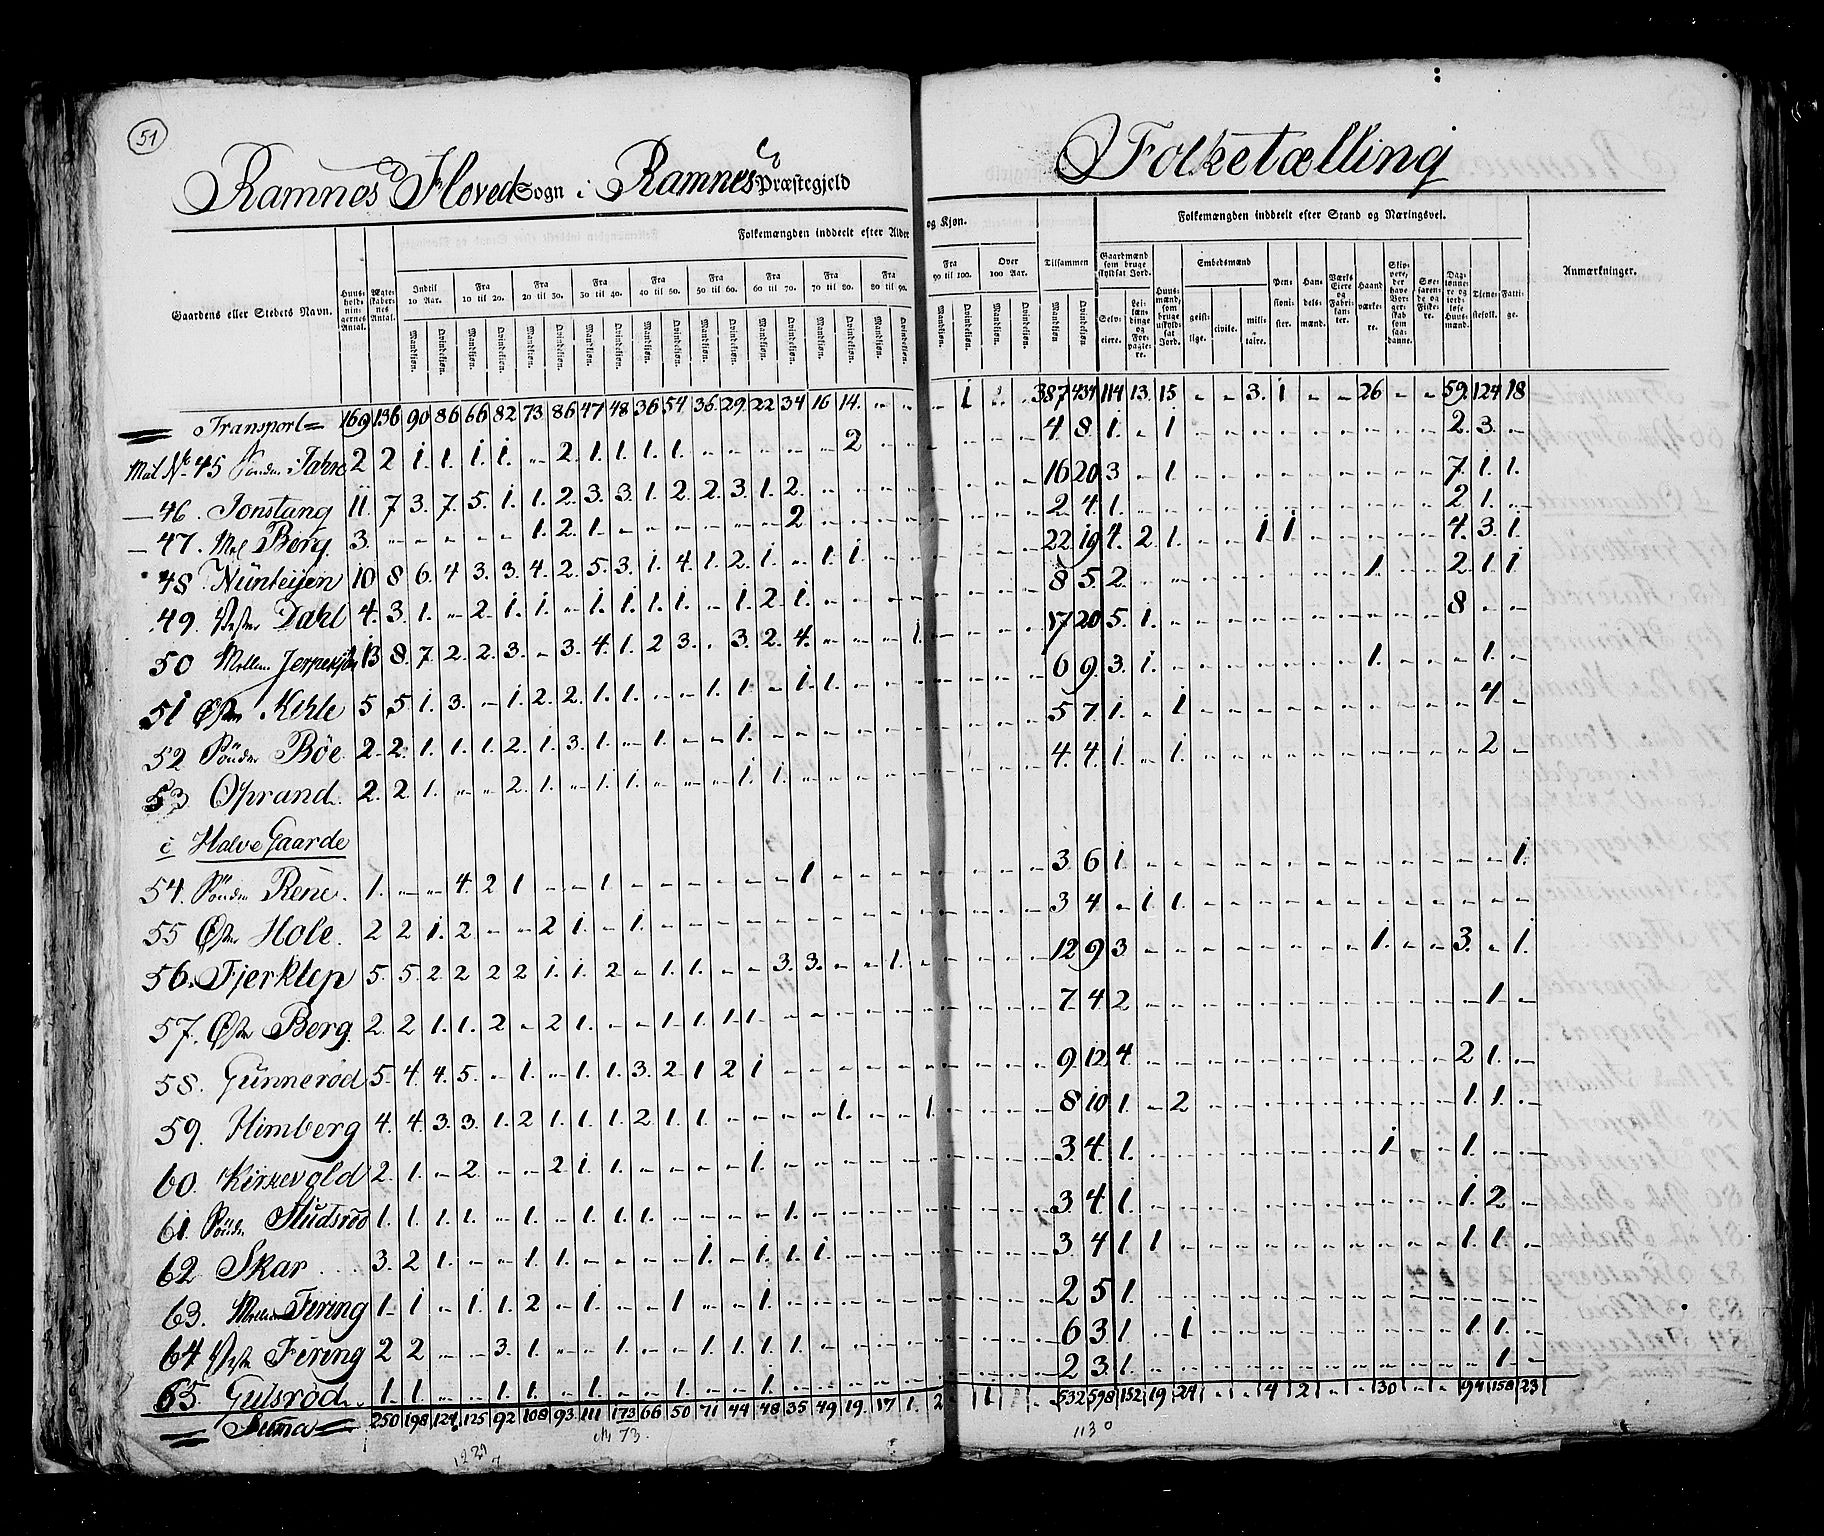 51
Ramnes Hoved Sogn i Ramnes Præstegjeld
Folketælling
Gaardens eller Stedets Navn.
Huus-holdningernes Antal.
Ægteskabernes Antal.
Folkemængden inddeelt efter Alder og Kjøn.
Indtil 10 Aar.
Fra 10 til 20.
Fra 20 til 30.
Fra 30 til 40.
Fra 40 til 50.
Fra 50 til 60.
Fra 60 til 70.
Fra 70 til 80.
Fra 80 til 90.
Fra 90 til 100.
Over 100 Aar.
Tilsammen
Mandkiøn. Qvindekiøn.
Folkemængden inddeelt efter Stand og Næringsvei.
Gaardmænd som bruge skyldsat Jord.
Selveiere.
Leilændinge og Forpagtere.
Huusmænd, som bruge uskyldsat Jord.
Embedsmænd
geistlige.
civile.
militaire.
Pensionister.
Handelsmænd.
Værks Eiere og Fabrikanter.
Haandværkere.
Skippere, der have Borgerskab som saadanne.
Søefarende og Fiskere.
Daglønnere og jordløse Huusmænd.
Tjenestefolk.
Fattige.
Anmærkninger.
Transport 169 136 90 86 66 82 73 86 47 48 36 54 36 29 22 34 16 14 .. .. - 1 387 434 114 13 15 - - 3 1 - - 26 - - 59 124 18
Mat. No 45 Sönder Jahre 2 2 1 1 1 1 - 2 1 1 1 1 - - - - - 2 4 8 1 - 1 2 3 -
46. Jonstang 11 7 3 7 5 1 1 2 3 3 1 2 2 3 1 2 16 20 3 - 1 7 1 1
47. Berg 3 - - - - - 1 2 1 - - - - - - 2 2 4 1 2 1 -
48 10 8 6 4 3 3 4 2 5 3 1 4 1 2 1 - 1 1 22 19 4 2 1 - - 1 1 4 3 1
49. Vester Dahl 4 3 1 - 2 1 1 - 1 1 1 1 - 1 2 1 8 5 2 1 2 1 1
50 Mellem 13 8 7 2 2 3 - 3 4 1 2 3 - 3 2 4 - - - 1 17 20 5 1 8 - -
51 Øster Kihle 5 5 1 3 - 1 2 2 1 1 - - 1 1 - 1 1 6 9 3 1 1 - - - 1 -
52 Sönder Böe 2 2 1 1 1 2 1 3 1 - 1 - - 1 5 7 1 - 1 4 -
53 Oprand 2 2 1 - - 2 1 - 1 1 - - - 1 1 4 4 1 - 1 2 -
c Halve Gaarde
54. Sönder Rene 1 - - 4 2 1 - - 1 - - - - - - 1 3 6 1 1
55 Øster Hole 2 2 1 2 - - 2 1 - 1 3 4 - 1 1
56. Fjerklep 5 5 2 2 2 2 1 1 2 - 1 1 - - 3 3 - - 1 12 9 3 1 - - 3 - 1
57. Øster Berg 2 2 1 1 2 - 2 1 - - 1 1 1 1 7 4 2 1 -
58. Gunnerød 5 4 4 5 - 1 - 1 1 3 2 1 2 1 9 12 4 2 1 -
59. Himberg 4 4 3 3 1 2 1 1 1 2 1 1 - - - - 1 - - 1 8 10 1 - 2 1 1 -
60. Kirkevold 2 1 - 2 - - 2 1 1 - - - - 1 3 4 1 1 - - 1
61. Sönder 1 1 1 1 - 1 - 1 1 1 - - - - 1 3 4 1 1 2 -
62 Skar 3 2 1 - - 1 1 - - - - 1 - 1 1 1 3 4 1 1 1 1 -
63. Mellem Fering 1 1 - 1 1 2 - 1 - - 1 - - 1 2 5 1
64 Vester Fering 2 2 - - 3 1 - - 1 - - 1 1 1 1 6 3 1 - 1 1 1 -
65. Gulsrød 1 1 - - 1 1 - 1 - - 1 - - 1 2 3 1 1 -
Suma 250 198 124 125 92 108 93 111 173 66 50 71 44 48 35 49 19 17 1 2 1 1 532 598 152 19 24 - - 4 2 - - 30 - - 94 158 23
73.
1130